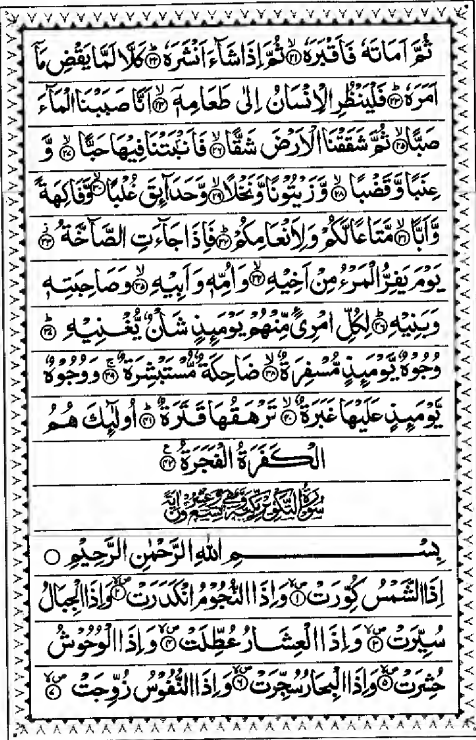 ثُمَّ اَمَاتَهٗ فَاَقْبَرَهٗ ﴿٢١﴾ ثُمَّ اِذَا شَآءَ اَنْشَرَهٗ ﴿٢٢﴾ كَلَّا لَمَّا يَقْضِ مَاۤ
اَمَرَهٗ ﴿٢٣﴾ فَلْيَنْظُرِ الْاِنْسَانُ اِلٰى طَعَامِهٖۤ ﴿٢٤﴾ اَنَّا صَبَبْنَا الْمَآءَ
صَبًّا ﴿٢٥﴾ ثُمَّ شَقَقْنَا الْاَرْضَ شَقًّا ﴿٢٦﴾ فَاَنْۢبَتْنَا فِيْهَا حَبًّا ﴿٢٧﴾ وَّ
عِنَبًا وَّقَضْبًا ﴿٢٨﴾ وَّزَيْتُوْنًا وَّنَخْلًا ﴿٢٩﴾ وَّحَدَآئِقَ غُلْبًا ﴿٣٠﴾ وَّفَاكِهَةً
وَّاَبًّا ﴿٣١﴾ مَّتَاعًا لَّكُمْ وَلِاَنْعَامِكُمْ ﴿٣٢﴾ فَاِذَا جَآءَتِ الصَّآخَّةُ ﴿٣٣﴾
يَوْمَ يَفِرُّ الْمَرْءُ مِنْ اَخِيْهِ ﴿٣٤﴾ وَاُمِّهٖ وَاَبِيْهِ ﴿٣٥﴾ وَصَاحِبَتِهٖ
وَبَنِيْهِ ﴿٣٦﴾ لِكُلِّ امْرِئٍ مِّنْهُمْ يَوْمَئِذٍ شَاْنٌ يُّغْنِيْهِ ﴿٣٧﴾
وُجُوْهٌ يَّوْمَئِذٍ مُّسْفِرَةٌ ﴿٣٨﴾ ضَاحِكَةٌ مُّسْتَبْشِرَةٌ ﴿٣٩﴾ وَوُجُوْهٌ
يَّوْمَئِذٍ عَلَيْهَا غَبَرَةٌ ﴿٤٠﴾ تَرْهَقُهَا قَتَرَةٌ ﴿٤١﴾ اُولٰٓئِكَ هُمُ
الْكَفَرَةُ الْفَجَرَةُ ﴿٤٢﴾
سُوْرَةُ التَّكْوِيْرِ مَكِّيَّةٌ وَّهِيَ تِسْعٌ وَّعِشْرُوْنَ اٰيَةً
بِسْمِ اللّٰهِ الرَّحْمٰنِ الرَّحِيْمِ ○
اِذَا الشَّمْسُ كُوِّرَتْ ﴿١﴾ وَاِذَا النُّجُوْمُ انْكَدَرَتْ ﴿٢﴾ وَاِذَا الْجِبَالُ
سُيِّرَتْ ﴿٣﴾ وَاِذَا الْعِشَارُ عُطِّلَتْ ﴿٤﴾ وَاِذَا الْوُحُوْشُ
حُشِرَتْ ﴿٥﴾ وَاِذَا الْبِحَارُ سُجِّرَتْ ﴿٦﴾ وَاِذَا النُّفُوْسُ زُوِّجَتْ ﴿٧﴾